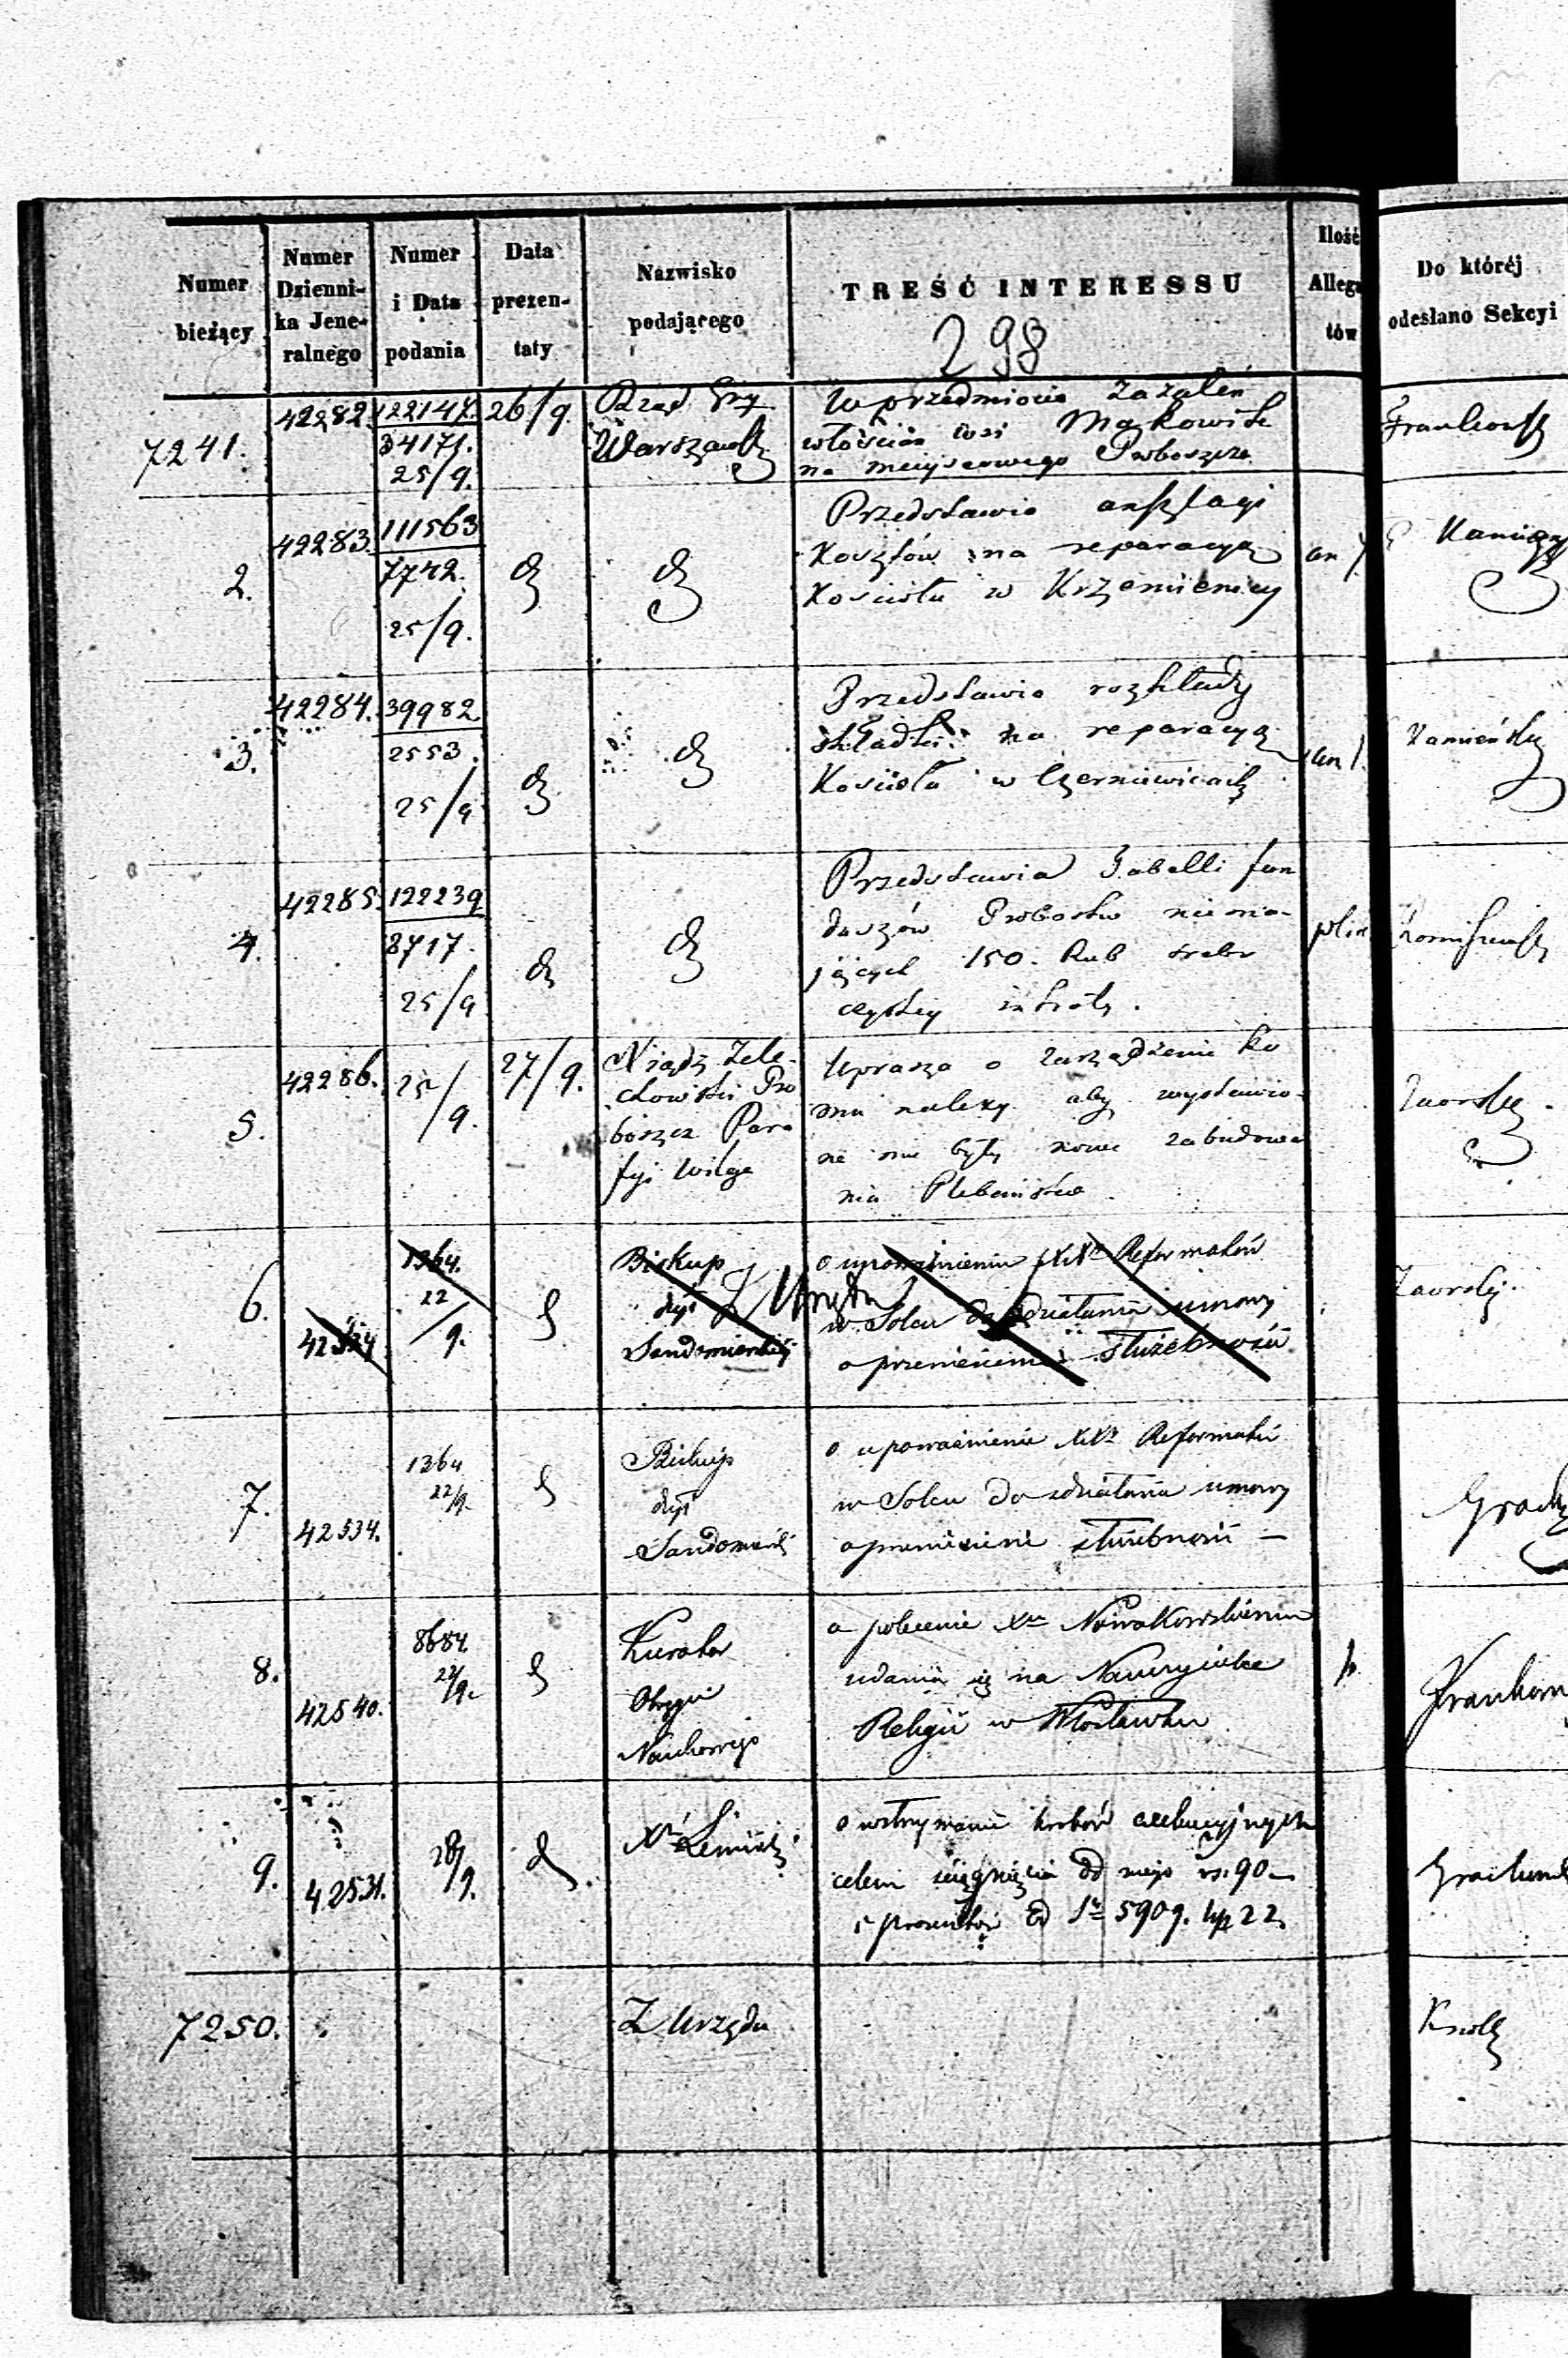 Numer bieżący
Numer Dzienni-ka Jene-ralnego
Numer i Data podania
Data prezen-taty
Nazwisko podającego
TREŚĆ INTERESSU
Ilość Allega tów
Do któréj odesłano Sekcyi
298
7241.
42282.
122147.
34171.
25/9.
26/9
Rząd Gny
Warszawsk
W przedmiocie zażaleń
włościan wsi Mąkowisk
na miejscowego Proboszcza
2.
42283.
111563
7742.
25/9.
Przedstawia anszlagi
Kosztów na reparacyą
Kościoła w Krzemienicy
an 7.
3.
42284.
39982
2553.
25/9
Przedstawia rozkłady
składki na reparacyą
Kościoła w Czerniewicach
an 1.
Kamieński
4.
42285.
122239
8717.
25/9
Przedstawia Tabelli fun
duszów Probostw niema-
jących 150. Rub srebr
czystey intraty.
5.
42286.
25/9.
27/9.
Xiądz Żele-
chowski Pro
boszcz Para
fji Wilga
Uprasza o zarządzenie ko
mu należy aby wystawio-
ne mu były nowe zabudowa
nia Plebańskie
6.
1364.
22/9.
Biskup
dyec
Sandomierski
Z Urzędu
o upoważnienie XXów Reformatów
w Solcu do zdziałania umowy
o przeniesienie służebności
7.
42534.
1364
22/9.
Biskup
dyec
Sandomierski
o upoważnienie XXów Reformatów
w Solcu do zdziałania umowy
o przeniesienie służebności —
8.
42540.
8684.
22/9.
Kurator
Okręgu
Naukowego
o polecenie Xu Nowakowskiemu
udania się na Nauczyciela
Religii w Włocławku
9.
42531.
o wstrzymanie kroków exekucyjnych
celem ściągnięcia od niego rs. 90—
i procentów od Sy 5909. kop 22.
7250.
Z Urzędu